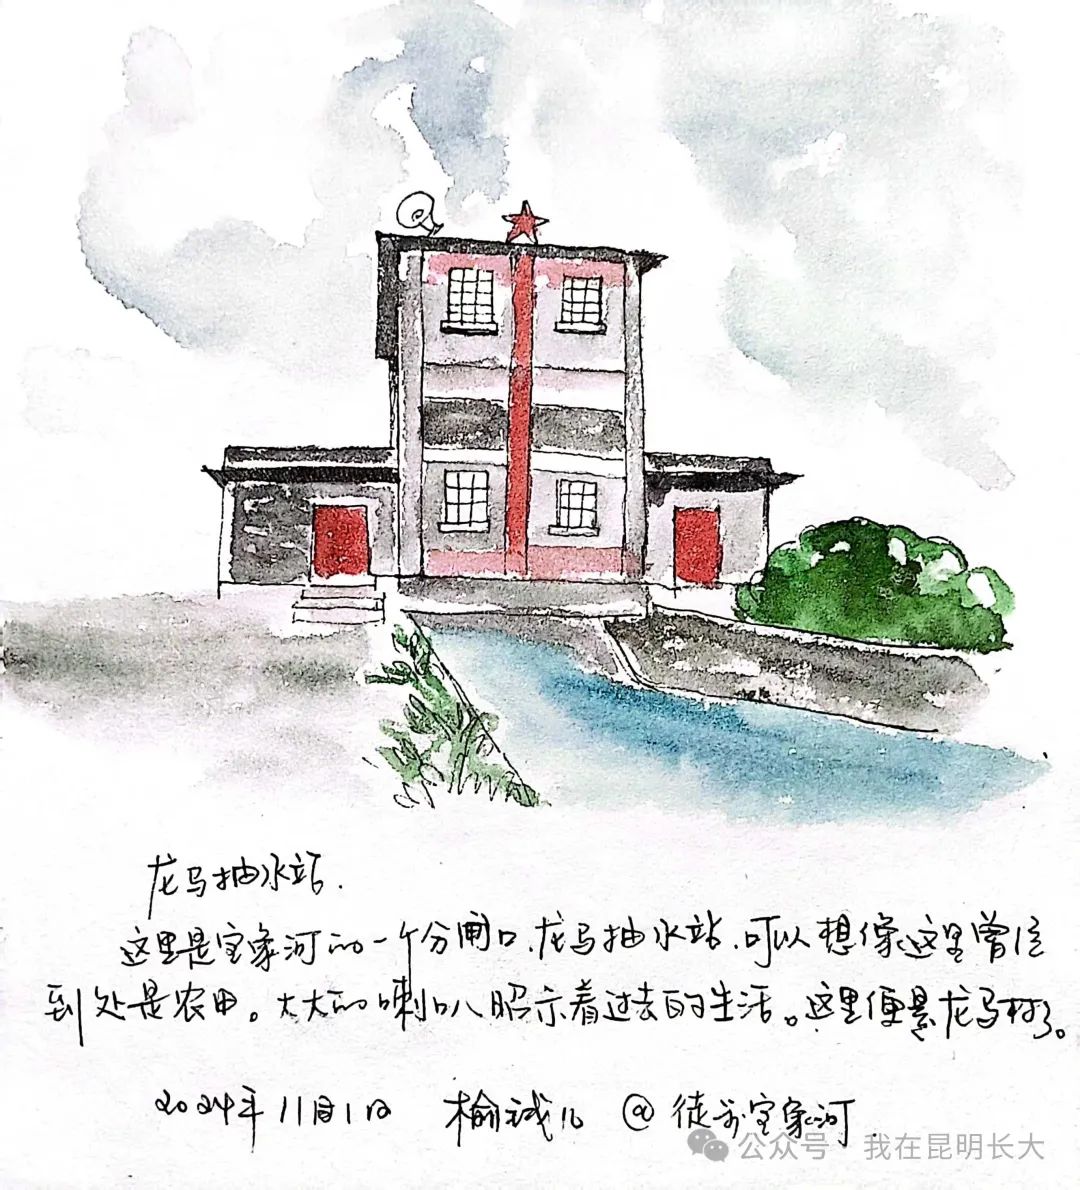 龙马抽水站.
这里是宝象河的一个分闸口,龙马抽水站,可以想像这里曾经
到处是农田。大大的喇叭昭示着过去的生活。这里便是龙马村了。
2024年11月1日 榆诚儿 @徒步宝象河.
公众号·我在昆明长大